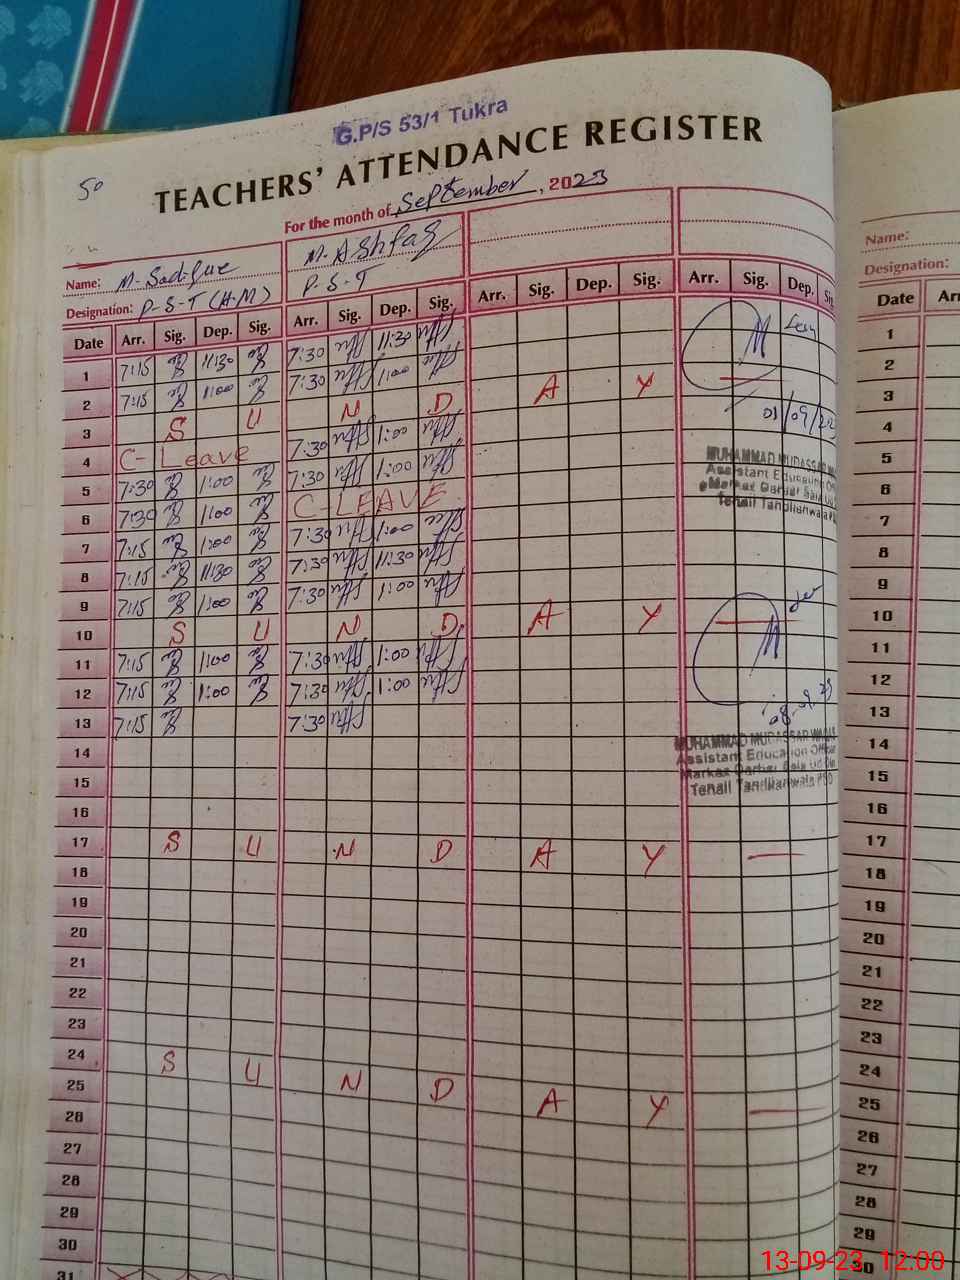 G.P/S 53/1 Tukra
50
TEACHERS' ATTENDANCE REGISTER
For the month of September, 2023
Name: M. Sadique M. Ashfaq
Designation: P-S-T (H.M) P-S-T
Date Arr. Sig. Dep. Sig. Arr. Sig. Dep. Sig. Arr. Sig. Dep. Sig. Arr. Sig. Dep.
1 7:15 11:30 7:30 11:30
2 7:15 1:00 7:30 1:00
3 S U N D A Y
4 C-Leave 7:30 1:00
5 7:30 1:00 7:30 1:00
6 7:30 1:00 C-LEAVE
7 7:15 1:00 7:30 1:00
8 7:15 11:30 7:30 11:30
9 7:15 1:00 7:30 1:00
10 S U N D A Y
11 7:15 1:00 7:30 1:00
12 7:15 1:00 7:30 1:00
13 7:15 7:30
14
15
16
17 S U N D A Y
18
19
20
21
22
23
24 S U N D A Y
25
26
27
28
29
30
31
01/09/23
MUHAMMAD MUDASSAR WA
Assistant Education Off
Markaz Darbar Baia Ud
Tehsil Tandlianwala
08-09-23
MUHAMMAD MUDASSAR WAQAS
Assistant Education Officer
Markaz Darbar Baia Ud Din
Tehsil Tandlianwala FSD
Name:
Designation:
Date Arr
1
2
3
4
5
6
7
8
9
10
11
12
13
14
15
16
17
18
19
20
21
22
23
24
25
26
27
28
29
30
13-09-23 12:00